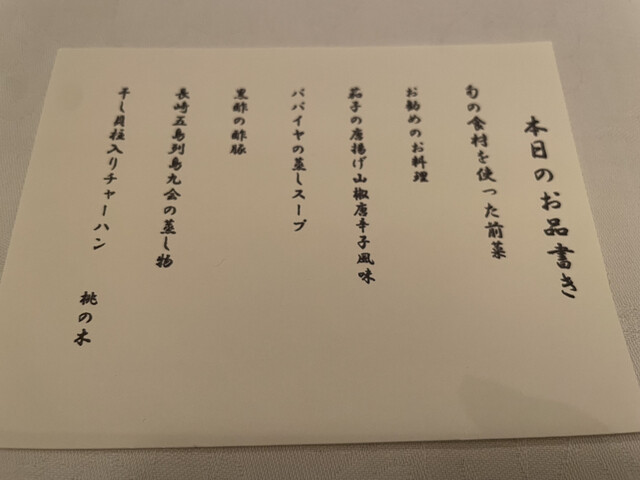 本日のお品書き
旬の食材を使った前菜
お勧めのお料理
茄子の唐揚げ山椒唐辛子風味
パパイヤの蒸しスープ
黒酢の酢豚
長崎五島列島九会の蒸し物
干し貝柱入りチャーハン
桃の木